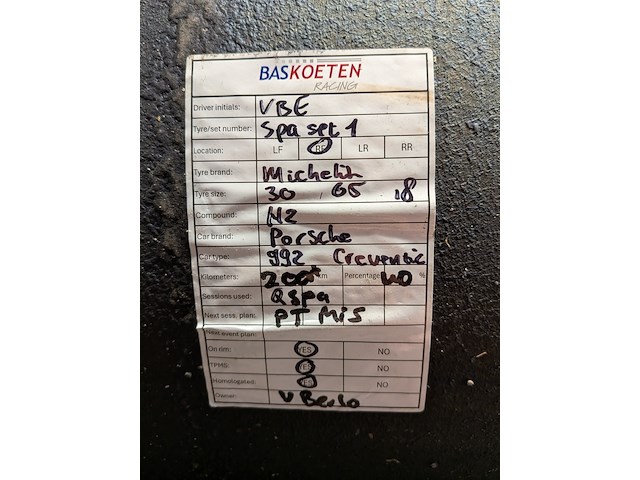 BASKOETEN
RACING
Driver initials: VBE
Tyre/set number: Spa set 1
Location: LF RF LR RR
Tyre brand: Michelin
Tyre size: 30 65 18
Compound: N2
Car brand: Porsche
Car type: 992 Creventic
Kilometers: 200 km Percentage 40 %
Sessions used: Q Spa
Next sess. plan: PT Mis
Next event plan:
On rim: YES NO
TPMS: YES NO
Homologated: YES NO
Owner: